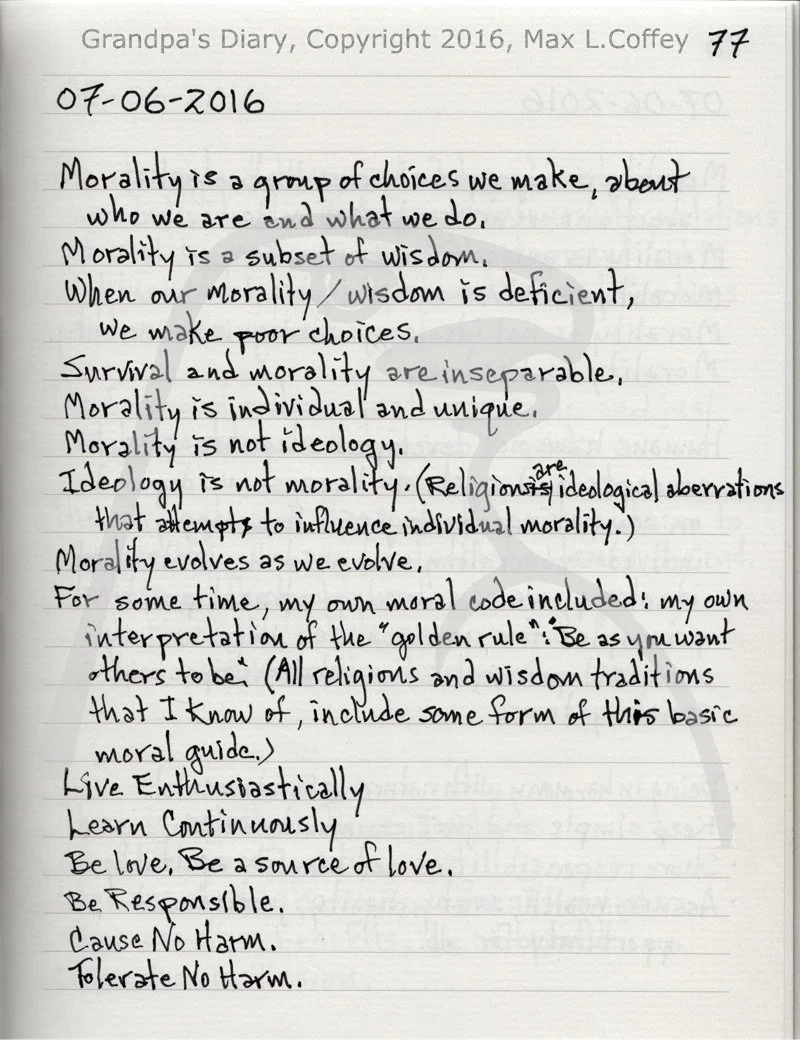 Grandpa's Diary, Copyright 2016, Max L.Coffey 77
07-06-2016
Morality is a group of choices we make, about
who we are and what we do.
Morality is a subset of wisdom.
When our morality/wisdom is deficient,
we make poor choices.
Survival and morality are inseparable.
Morality is individual and unique.
Morality is not ideology.
Ideology is not morality. (Religions are ideological aberrations
that attempt to influence individual morality.)
Morality evolves as we evolve.
For some time, my own moral code included: my own
interpretation of the "golden rule": "Be as you want
others to be." (All religions and wisdom traditions
that I know of, include some form of this basic
moral guide.)
Live Enthusiastically
Learn Continuously
Be love. Be a source of love.
Be Responsible.
Cause No Harm.
Tolerate No Harm.